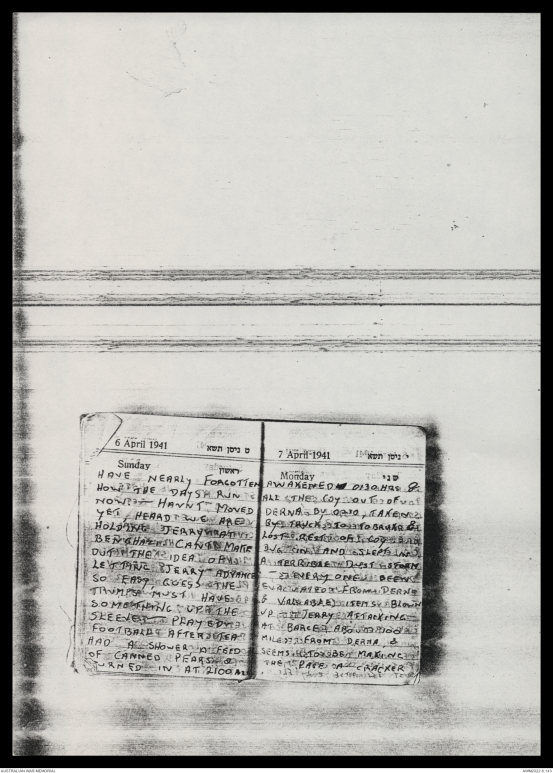 6 April 1941 ט ניסן תשא
Sunday ראשון
HAVE NEARLY FORGOTTEN
HOW THE DAYS RUN
NOW - HAVN'T MOVED
YET HEARD WE ARE
HOLDING JERRY AT
BENGHAZI CANT MAKE
OUT THE IDEA OF
LETTING JERRY ADVANCE
SO EASY GUESS THE
TRUMPS MUST HAVE
SOMETHING UP THE
SLEEVE - PLAYED
FOOTBALL AFTER TEA
HAD A SHOWER A FEED
OF CANNED PEARS &
TURNED IN AT 2100
7 April 1941 י ניסן תשא
Monday שני
AWAKENED 0130 HRS &
ALL THE COY OUT OF
DERNA BY 0230, TAKEN
BY TRUCK TO TOBRUK &
LOST REST OF COY
DUG IN AND SLEPT IN
A TERRIBLE DUST STORM
- EVERYONE BEEN
EVACUATED FROM DERNA
& VALUABLE ITEMS BLOWN
UP - JERRY ATTACKING
AT BARCE ABOUT 100
MILES FROM DERNA &
SEEMS TO BE MAKING
THE PACE A CRACKER
AUSTRALIAN WAR MEMORIAL